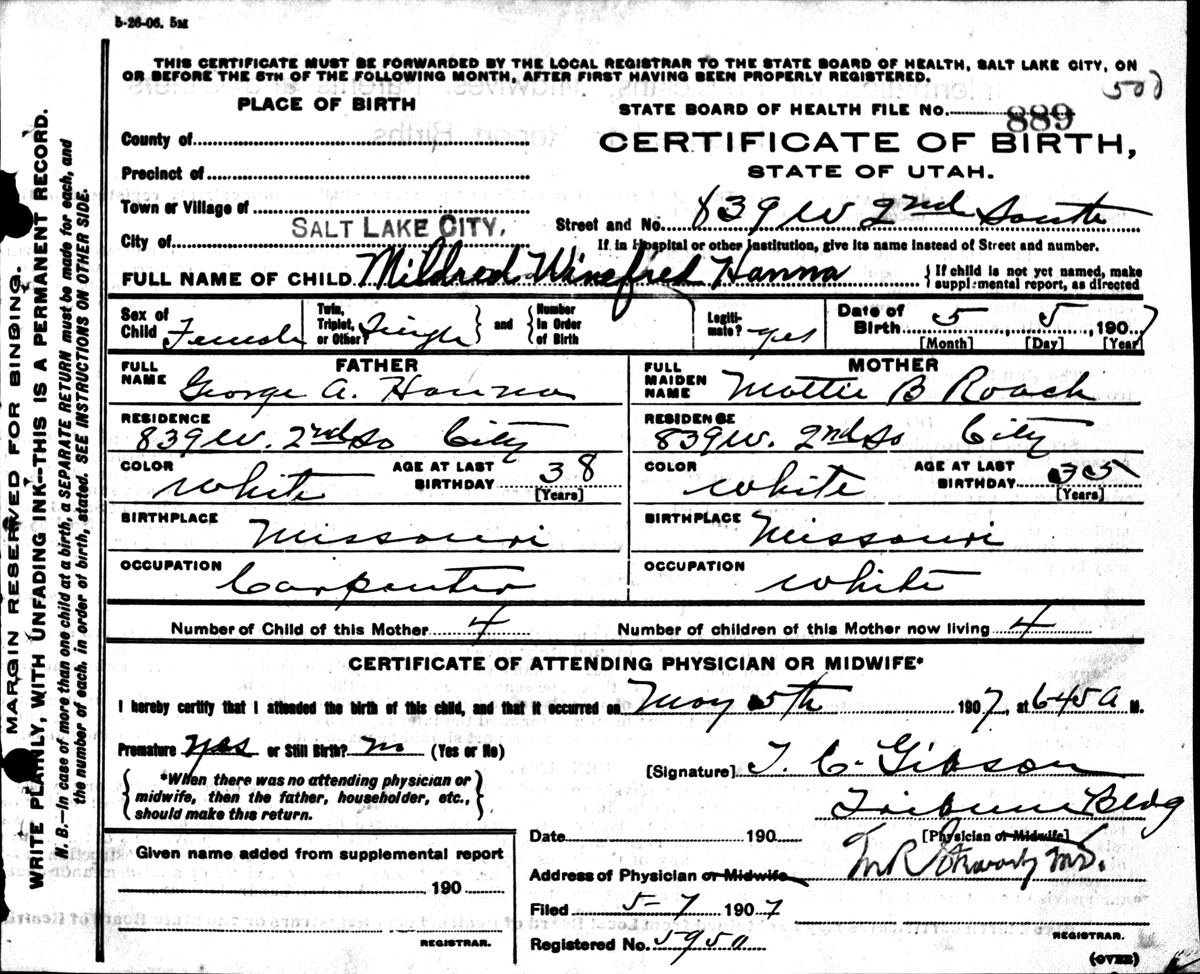 5-26-06. 5M
THIS CERTIFICATE MUST BE FORWARDED BY THE LOCAL REGISTRAR TO THE STATE BOARD OF HEALTH, SALT LAKE CITY, ON
OR BEFORE THE 5TH OF THE FOLLOWING MONTH, AFTER FIRST HAVING BEEN PROPERLY REGISTERED.
500
PLACE OF BIRTH
STATE BOARD OF HEALTH FILE No. 889
CERTIFICATE OF BIRTH,
STATE OF UTAH.
County of
Precinct of
Town or Village of
City of SALT LAKE CITY.
Street and No. 839 W 2nd South
If in Hospital or other Institution, give its name instead of Street and number.
FULL NAME OF CHILD Mildred Winefred Hanna
{ If child is not yet named, make
supplemental report, as directed
Sex of Child Female
Twin, Triplet, or Other? Single } and { Number in Order of Birth
Legitimate? yes
Date of Birth 5 5, 1907
[Month] [Day] [Year]
FATHER
FULL NAME George A. Hanna
RESIDENCE 839 W. 2nd So City
COLOR White AGE AT LAST BIRTHDAY 38 [Years]
BIRTHPLACE Missouri
OCCUPATION Carpenter
MOTHER
FULL MAIDEN NAME Mattie B Roach
RESIDENCE 839 W. 2nd So City
COLOR White AGE AT LAST BIRTHDAY 35 [Years]
BIRTHPLACE Missouri
OCCUPATION White
Number of Child of this Mother 4 Number of children of this Mother now living 4
CERTIFICATE OF ATTENDING PHYSICIAN OR MIDWIFE*
I hereby certify that I attended the birth of this child, and that it occurred on May 5th 1907, at 645 a M.
Premature yes or Still Birth? no (Yes or No)
{ *When there was no attending physician or
midwife, then the father, householder, etc.,
should make this return. }
[Signature] T. C. Gibson
Tribune Bldg
[Physician or Midwife]
Date 190
Address of Physician or Midwife
M.D.
Given name added from supplemental report
190
REGISTRAR.
Filed 5-7 1907
Registered No. 595a
REGISTRAR.
(OVER)
MARGIN RESERVED FOR BINDING.
WRITE PLAINLY, WITH UNFADING INK--THIS IS A PERMANENT RECORD.
N. B.—In case of more than one child at a birth, a SEPARATE RETURN must be made for each, and
the number of each, in order of birth, stated. SEE INSTRUCTIONS ON OTHER SIDE.